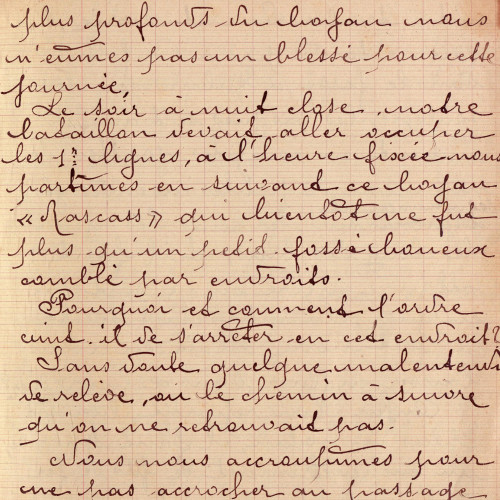 plus profonds du boyau nous
n'eûmes pas un blessé pour cette
journée.
Le soir à nuit close, notre
bataillon devait aller occuper
les 1res lignes, à l'heure fixée nous
partîmes en suivant ce boyau
« Rascass » qui bientôt ne fut
plus qu'un petit fossé boueux
comblé par endroits.
Pourquoi et comment l'ordre
vint-il de s'arrêter en cet endroit?
Sans doute quelque malentendu
de relève, ou le chemin à suivre
qu'on ne retrouvait pas.
Nous nous accroupîmes pour
ne pas accrocher au passage